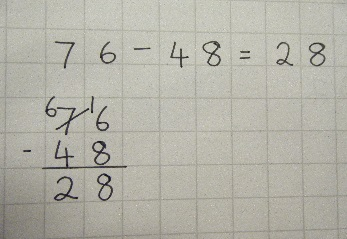 76 - 48 = 28
6 7 16
- 48
28